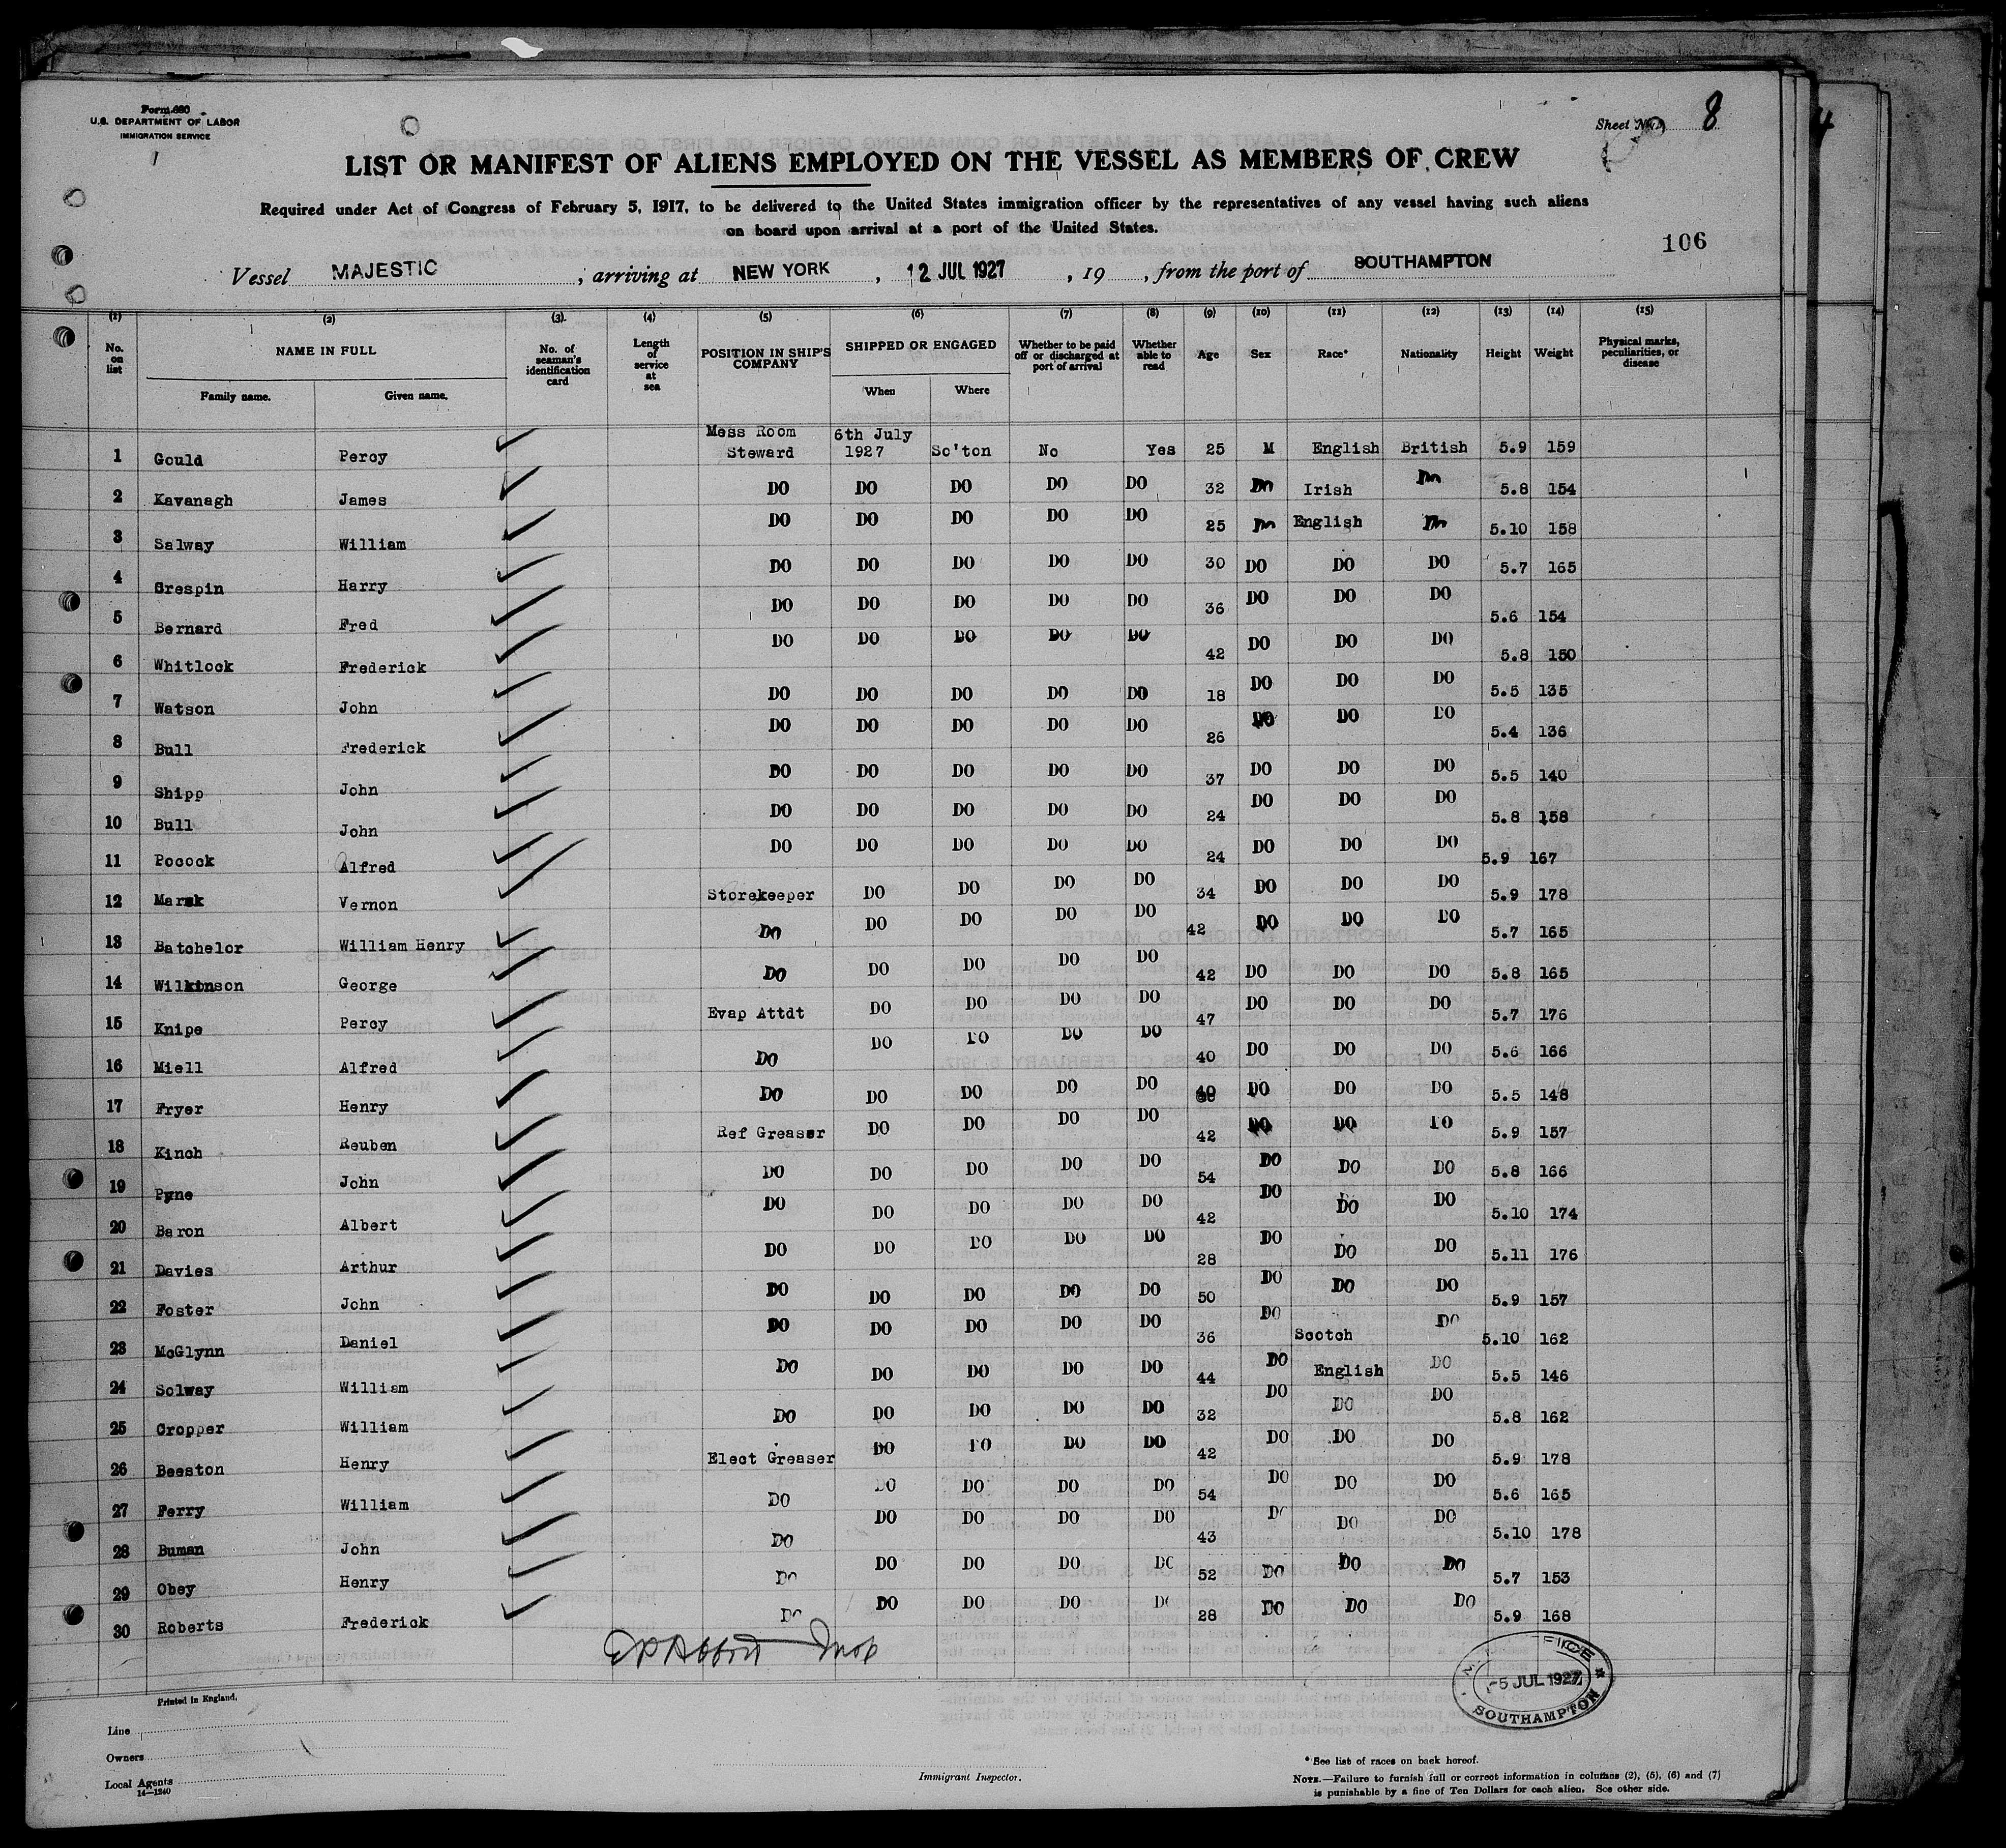 Form 680
U.S. DEPARTMENT OF LABOR
IMMIGRATION SERVICE
Sheet No. 8
LIST OR MANIFEST OF ALIENS EMPLOYED ON THE VESSEL AS MEMBERS OF CREW
Required under Act of Congress of February 5, 1917, to be delivered to the United States immigration officer by the representatives of any vessel having such aliens
on board upon arrival at a port of the United States.
106
Vessel MAJESTIC ; arriving at NEW YORK , 12 JUL 1927 , 19 , from the port of SOUTHAMPTON
(1) (2) (3) (4) (5) (6) (7) (8) (9) (10) (11) (12) (13) (14) (15)
No. on list NAME IN FULL Family name. Given name. No. of seaman's identification card Length of service at sea POSITION IN SHIP'S COMPANY SHIPPED OR ENGAGED When Where Whether to be paid off or discharged at port of arrival Whether able to read Age Sex Race* Nationality Height Weight Physical marks, peculiarities, or disease
1 Gould Percy Mess Room Steward 6th July 1927 So'ton No Yes 25 M English British 5.9 159
2 Kavanagh James DO DO DO DO DO 32 DO Irish DO 5.8 154
3 Salway William DO DO DO DO DO 25 DO English DO 5.10 158
4 Grespin Harry DO DO DO DO DO 30 DO DO DO 5.7 165
5 Bernard Fred DO DO DO DO DO 36 DO DO DO 5.6 154
6 Whitlock Frederick DO DO DO DO DO 42 DO DO DO 5.8 150
7 Watson John DO DO DO DO DO 18 DO DO DO 5.5 135
8 Bull Frederick DO DO DO DO DO 26 DO DO DO 5.4 136
9 Shipp John DO DO DO DO DO 37 DO DO DO 5.5 140
10 Bull John DO DO DO DO DO 24 DO DO DO 5.8 158
11 Pocock Alfred DO DO DO DO DO 24 DO DO DO 5.9 167
12 Marsk Vernon Storekeeper DO DO DO DO 34 DO DO DO 5.9 178
13 Batchelor William Henry DO DO DO DO DO 42 DO DO DO 5.7 165
14 Wilkinson George DO DO DO DO DO 42 DO DO DO 5.8 165
15 Knipe Percy Evap Attdt DO DO DO DO 47 DO DO DO 5.7 176
16 Miell Alfred DO DO DO DO DO 40 DO DO DO 5.6 166
17 Fryer Henry DO DO DO DO DO 40 DO DO DO 5.5 148
18 Kinch Reuben Ref Greaser DO DO DO DO 42 DO DO DO 5.9 157
19 Pyne John DO DO DO DO DO 54 DO DO DO 5.8 166
20 Baron Albert DO DO DO DO DO 42 DO DO DO 5.10 174
21 Davies Arthur DO DO DO DO DO 28 DO DO DO 5.11 176
22 Foster John DO DO DO DO DO 50 DO DO DO 5.9 157
23 McGlynn Daniel DO DO DO DO DO 36 DO Scotch DO 5.10 162
24 Solway William DO DO DO DO DO 44 DO English DO 5.5 146
25 Cropper William DO DO DO DO DO 32 DO DO DO 5.8 162
26 Beeston Henry Elect Greaser DO DO DO DO 42 DO DO DO 5.9 178
27 Ferry William DO DO DO DO DO 54 DO DO DO 5.6 165
28 Buman John DO DO DO DO DO 43 DO DO DO 5.10 178
29 Obey Henry DO DO DO DO DO 52 DO DO DO 5.7 153
30 Roberts Frederick DO DO DO DO DO 28 DO DO DO 5.9 168
5 JUL 1927
SOUTHAMPTON
Printed in England.
Line
Owners
Local Agents
14—1240
Immigrant Inspector.
* See list of races on back hereof.
NOTE.—Failure to furnish full or correct information in columns (2), (5), (6) and (7)
is punishable by a fine of Ten Dollars for each alien. See other side.